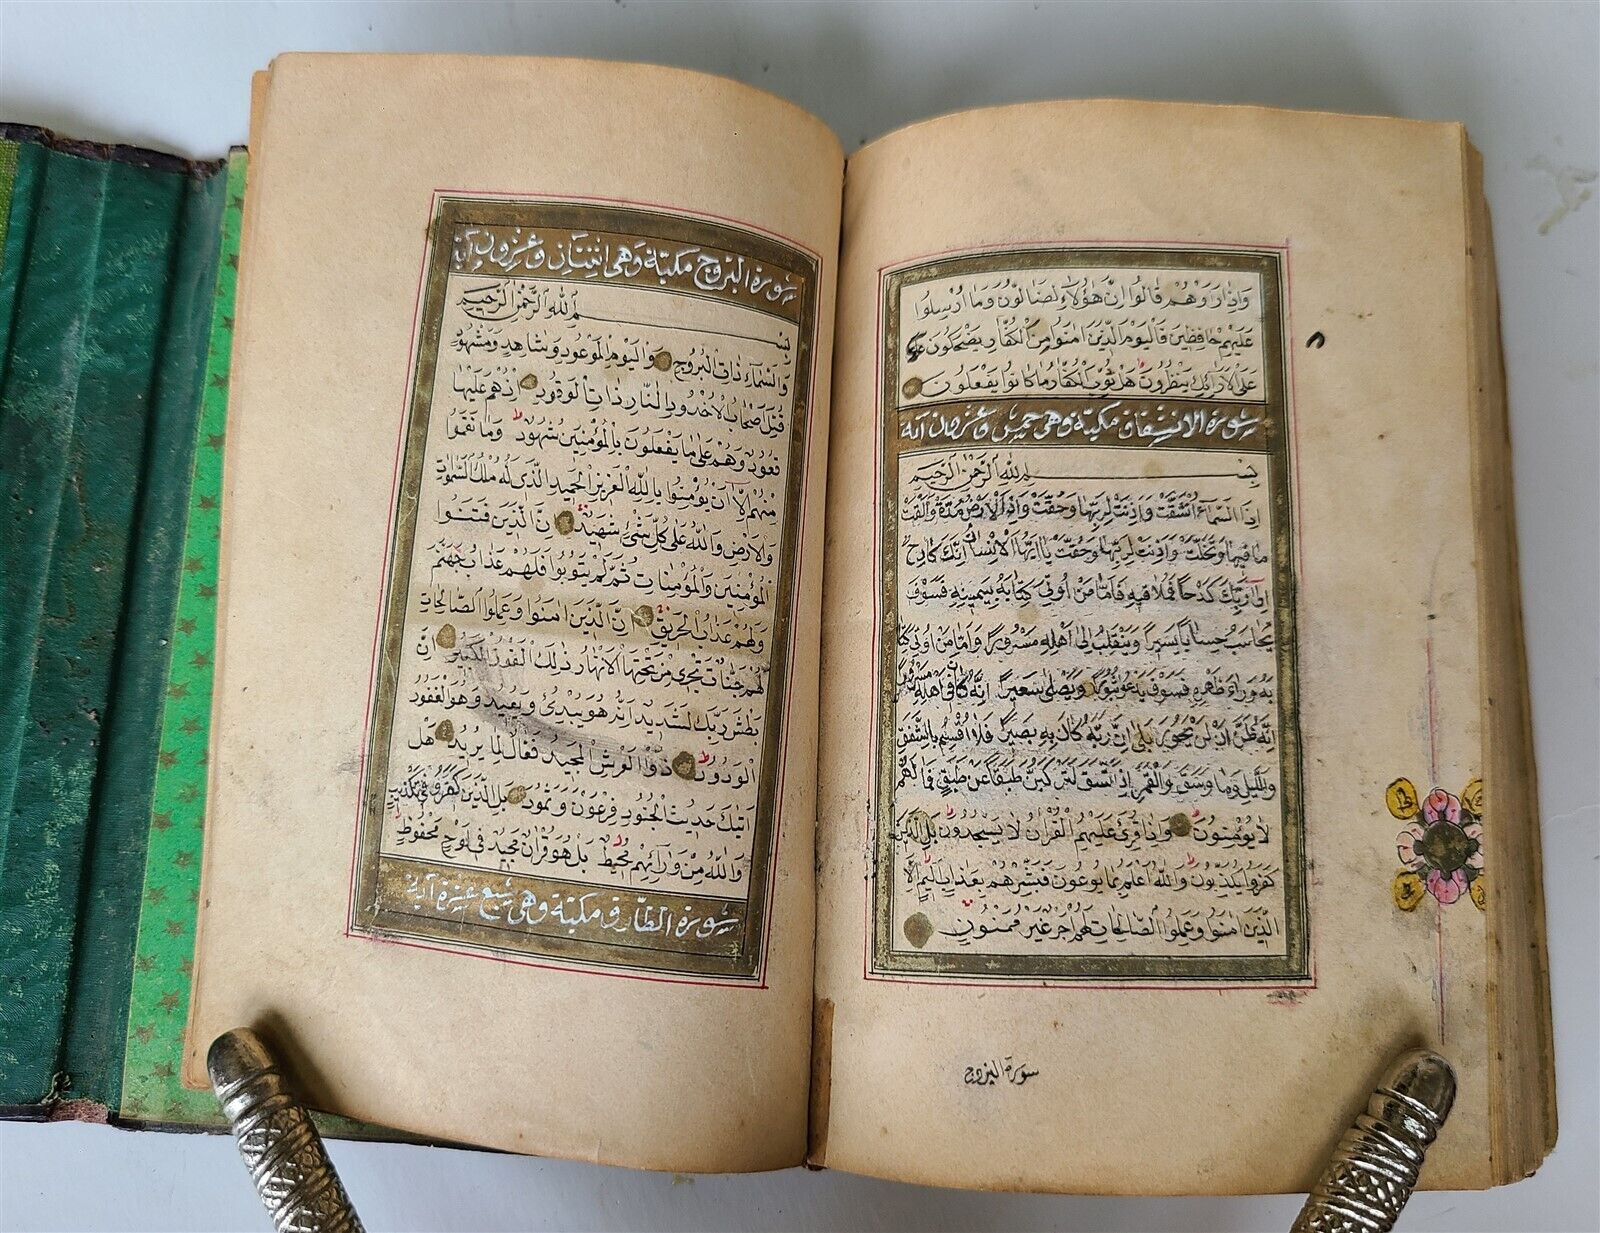 وَاِذَا رَاَوْهُمْ قَالُوا اِنَّ هٰؤُلَاءِ لَضَالُّونَ وَمَا اُرْسِلُوا
عَلَيْهِمْ حَافِظِينَ فَالْيَوْمَ الَّذِينَ اٰمَنُوا مِنَ الْكُفَّارِ يَضْحَكُونَ
عَلَى الْاَرَائِكِ يَنْظُرُونَ هَلْ ثُوِّبَ الْكُفَّارُ مَا كَانُوا يَفْعَلُونَ
سورة الانشقاق مكية وهى خمس وعشرون آية
بِسْمِ اللهِ الرَّحْمٰنِ الرَّحِيمِ
اِذَا السَّمَاءُ انْشَقَّتْ وَاَذِنَتْ لِرَبِّهَا وَحُقَّتْ وَاِذَا الْاَرْضُ مُدَّتْ وَاَلْقَتْ
مَا فِيهَا وَتَخَلَّتْ وَاَذِنَتْ لِرَبِّهَا وَحُقَّتْ يَا اَيُّهَا الْاِنْسَانُ اِنَّكَ كَادِحٌ
اِلٰى رَبِّكَ كَدْحًا فَمُلَاقِيهِ فَاَمَّا مَنْ اُوتِيَ كِتَابَهُ بِيَمِينِهِ فَسَوْفَ
يُحَاسَبُ حِسَابًا يَسِيرًا وَيَنْقَلِبُ اِلٰى اَهْلِهِ مَسْرُورًا وَاَمَّا مَنْ اُوتِيَ كِتَا
بَهُ وَرَاءَ ظَهْرِهِ فَسَوْفَ يَدْعُو ثُبُورًا وَيَصْلٰى سَعِيرًا اِنَّهُ كَانَ فِي اَهْلِهِ مَسْرُورًا
اِنَّهُ ظَنَّ اَنْ لَنْ يَحُورَ بَلٰى اِنَّ رَبَّهُ كَانَ بِهِ بَصِيرًا فَلَا اُقْسِمُ بِالشَّفَقِ
وَاللَّيْلِ وَمَا وَسَقَ وَالْقَمَرِ اِذَا اتَّسَقَ لَتَرْكَبُنَّ طَبَقًا عَنْ طَبَقٍ فَمَا لَهُمْ
لَا يُؤْمِنُونَ وَاِذَا قُرِئَ عَلَيْهِمُ الْقُرْاٰنُ لَا يَسْجُدُونَ بَلِ الَّذِينَ
كَفَرُوا يُكَذِّبُونَ وَاللهُ اَعْلَمُ بِمَا يُوعُونَ فَبَشِّرْهُمْ بِعَذَابٍ اَلِيمٍ اِلَّا
الَّذِينَ اٰمَنُوا وَعَمِلُوا الصَّالِحَاتِ لَهُمْ اَجْرٌ غَيْرُ مَمْنُونٍ
سورة البروج
سورة البروج مكية وهى اثنتان وعشرون آية
بِسْمِ اللهِ الرَّحْمٰنِ الرَّحِيمِ
وَالسَّمَاءِ ذَاتِ الْبُرُوجِ وَالْيَوْمِ الْمَوْعُودِ وَشَاهِدٍ وَمَشْهُودٍ
قُتِلَ اَصْحَابُ الْاُخْدُودِ النَّارِ ذَاتِ الْوَقُودِ اِذْ هُمْ عَلَيْهَا
قُعُودٌ وَهُمْ عَلٰى مَا يَفْعَلُونَ بِالْمُؤْمِنِينَ شُهُودٌ وَمَا نَقَمُوا
مِنْهُمْ اِلَّا اَنْ يُؤْمِنُوا بِاللهِ الْعَزِيزِ الْحَمِيدِ الَّذِي لَهُ مُلْكُ السَّمٰوَاتِ
وَالْاَرْضِ وَاللهُ عَلٰى كُلِّ شَيْءٍ شَهِيدٌ اِنَّ الَّذِينَ فَتَنُوا
الْمُؤْمِنِينَ وَالْمُؤْمِنَاتِ ثُمَّ لَمْ يَتُوبُوا فَلَهُمْ عَذَابُ جَهَنَّمَ
وَلَهُمْ عَذَابُ الْحَرِيقِ اِنَّ الَّذِينَ اٰمَنُوا وَعَمِلُوا الصَّالِحَاتِ
لَهُمْ جَنَّاتٌ تَجْرِي مِنْ تَحْتِهَا الْاَنْهَارُ ذٰلِكَ الْفَوْزُ الْكَبِيرُ اِنَّ
بَطْشَ رَبِّكَ لَشَدِيدٌ اِنَّهُ هُوَ يُبْدِئُ وَيُعِيدُ وَهُوَ الْغَفُورُ
الْوَدُودُ ذُو الْعَرْشِ الْمَجِيدُ فَعَّالٌ لِمَا يُرِيدُ هَلْ
اَتٰيكَ حَدِيثُ الْجُنُودِ فِرْعَوْنَ وَثَمُودَ بَلِ الَّذِينَ كَفَرُوا فِي تَكْذِيبٍ
وَاللهُ مِنْ وَرَائِهِمْ مُحِيطٌ بَلْ هُوَ قُرْاٰنٌ مَجِيدٌ فِي لَوْحٍ مَحْفُوظٍ
سورة الطارق مكية وهى سبع عشرة آية